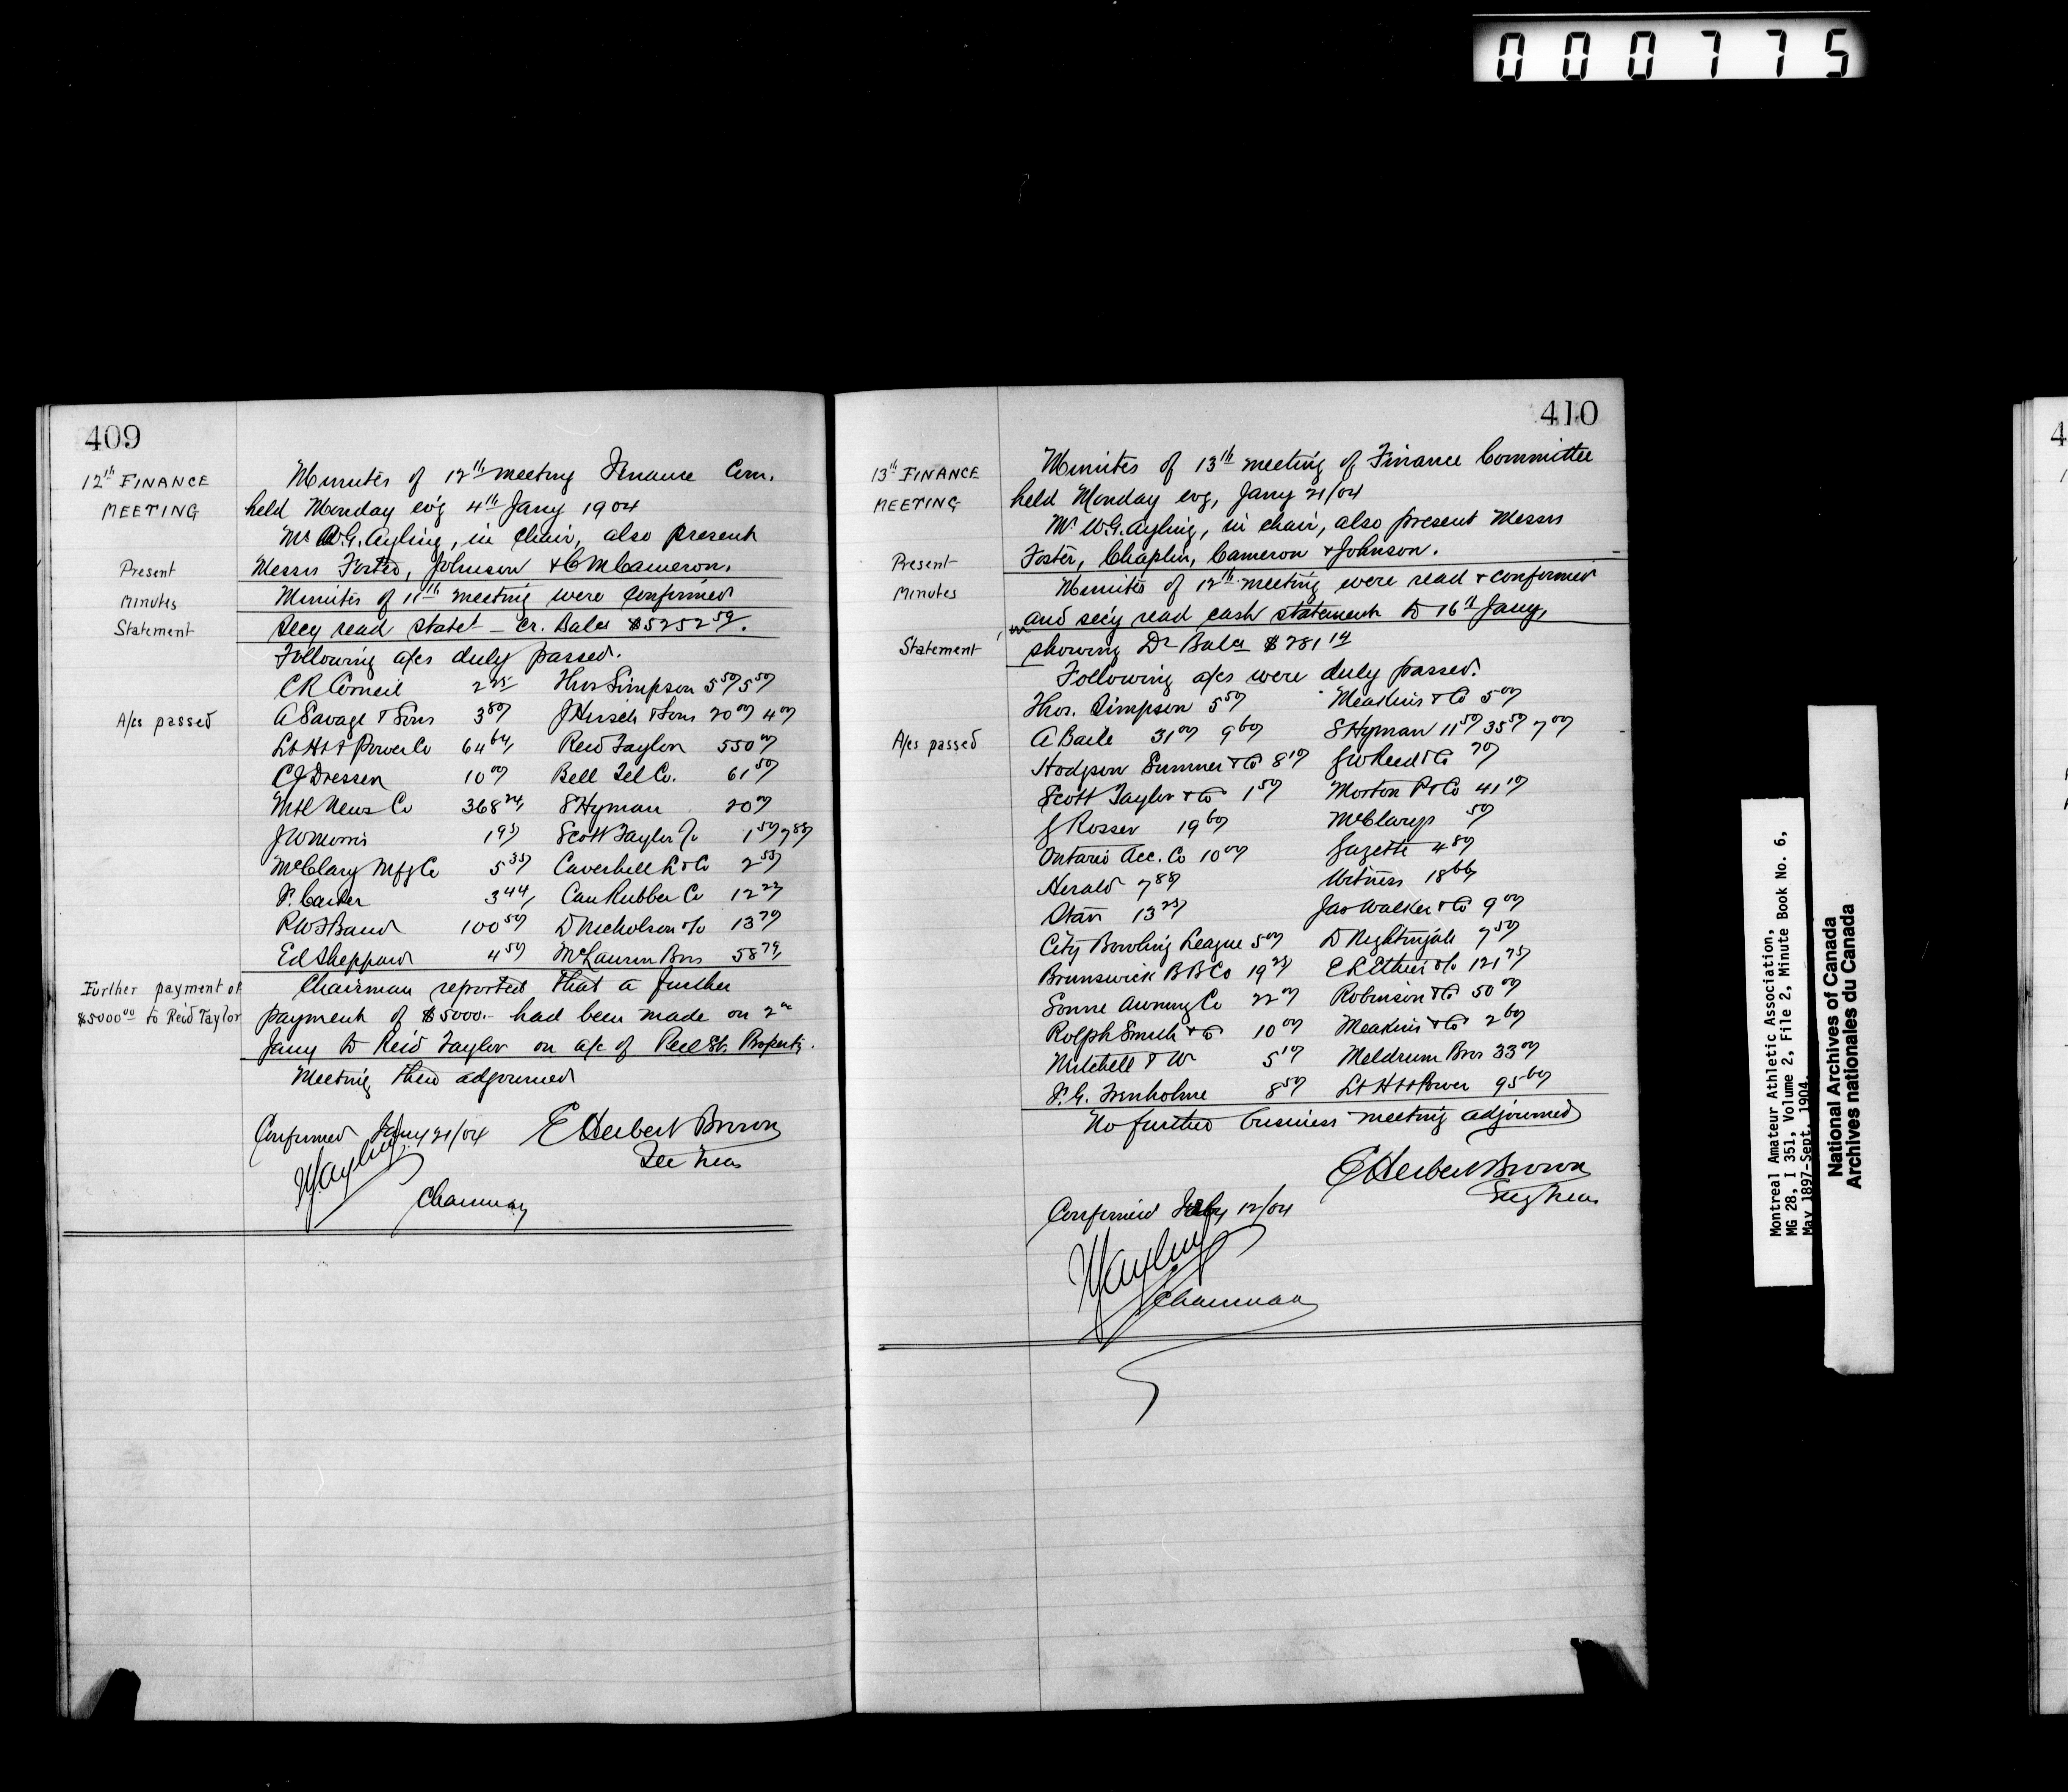 000775
409
12th FINANCE MEETING
Minutes of 12th meeting Finance Com.
held Monday ev'g 4th Jany 1904
Mr W.G. Ayling, in chair, also present
Present
Messrs Foster, Johnson & C M Cameron.
Minutes
Minutes of 11th meeting were confirmed
Statement
Secy read statet - Cr. Balce $5252 59.
Following a/cs duly passed.
A/cs passed
C R Corneil 2 25 Thos Simpson 5 50 5 50
A Savage & Sons 3 80 J Hirsch & Sons 20 00 4 00
Lt Ht & Power Co 64 64 Reid Taylor 550 00
C J Dressen 10 00 Bell Tel Co. 61 50
Mtl News Co 368 24 S Hyman 20 00
J W Morris 1 95 Scott Taylor Co 1 50 7 85
McClary Mfg Co 5 35 Caverhill L & Co 2 55
P. Carter 3 44 Can Rubber Co 12 25
R W S Band 100 50 D Nicholson 13 70
Ed Sheppard 4 50 McLaurin Bros 58 79
Further payment of
$5000 00 to Reid Taylor
Chairman reported that a further
payment of $5000.- had been made on 2nd
Jany to Reid Taylor on a/c of Peel St. Property.
Meeting then adjourned
Confirmed Jany 21/04 E Herbert Brown
Sec Treas
W G Ayling
Chairman
410
13th FINANCE MEETING
Minutes of 13th meeting of Finance Committee
held Monday evg, Jany 21/04
Mr W.G. Ayling, in chair, also present Messrs
Present
Foster, Chaplin, Cameron & Johnson.
Minutes
Minutes of 12th meeting were read & confirmed
and sec'y read cash statement to 16th Jany,
Statement
showing Dr Balce $781 14
Following a/cs were duly passed.
A/cs passed
Thos. Simpson 5 50 Meakins & Co 5 00
A Baile 31 00 9 60 S Hyman 11 50 35 50 7 00
Hodgson Sumner & Co 8 10 J W Reed & Co 70
Scott Taylor & Co 1 50 Morton P & Co 41 10
J Rosser 19 60 McClarys 50
Ontario Acc. Co 10 00 Gazette 4 80
Herald 7 88 Witness 18 66
Star 13 25 Jas Walker & Co 9 00
City Bowling League 5 00 D Nightingale 7 50
Brunswick B B Co 19 25 121 75
Sonne Awning Co 22 00 Robinson & Co 50 00
Rolph Smith & Co 10 00 Meakins & Co 2 60
Mitchell & W 5 10 Meldrum Bros 33 00
P. G. Trenholme 8 50 Lt Ht & Power 95 60
No further business meeting adjourned
E Herbert Brown
Secy Treas
Confirmed Feby 12/04
W G Ayling
Chairman
Montreal Amateur Athletic Association,
MG 28, I 351, Volume 2, File 2, Minute Book No. 6,
May 1897-Sept. 1904.
National Archives of Canada
Archives nationales du Canada
4